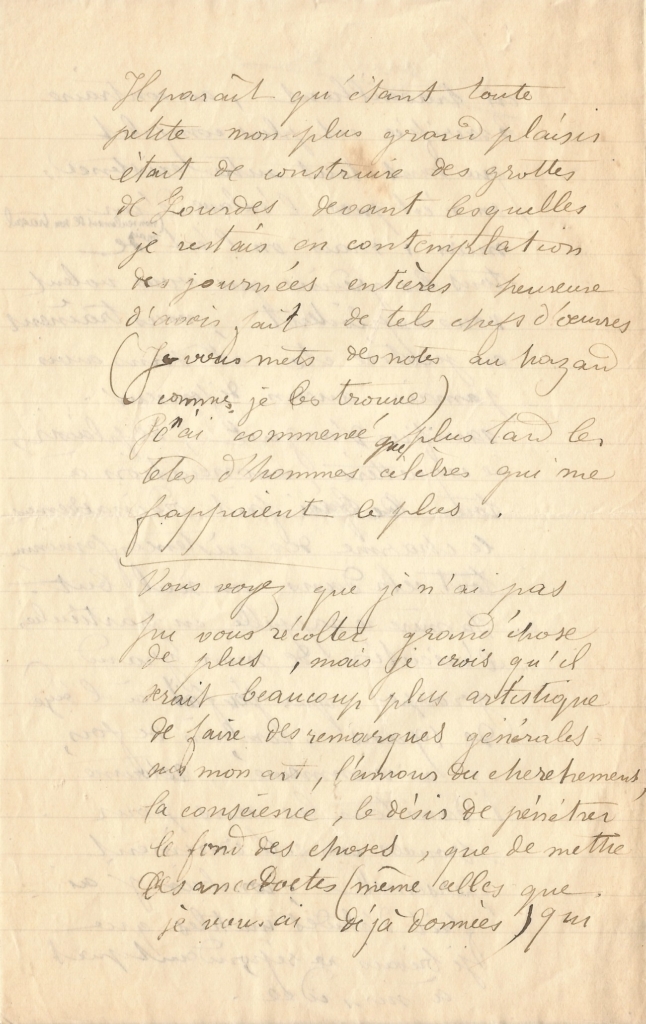 Il paraît qu'étant toute
petite mon plus grand plaisir
était de construire des grottes
de Lourdes devant lesquelles
je restais en contemplation
des journées entières heureuse
d'avoir fait de tels chefs d'œuvres
(Je vous mets des notes au hazard
comme je les trouve)
Je n'ai commencé que plus tard les
têtes d'hommes célèbres qui me
frappaient le plus.
Vous voyez que je n'ai pas
pu vous récolter grand'chose
de plus, mais je crois qu'il
serait beaucoup plus artistique
de faire des remarques générales
sur mon art, l'amour du cherchement,
la conscience, le désir de pénétrer
le fond des choses, que de mettre
des anecdoctes (même celles que
je vous ai déjà données) qui